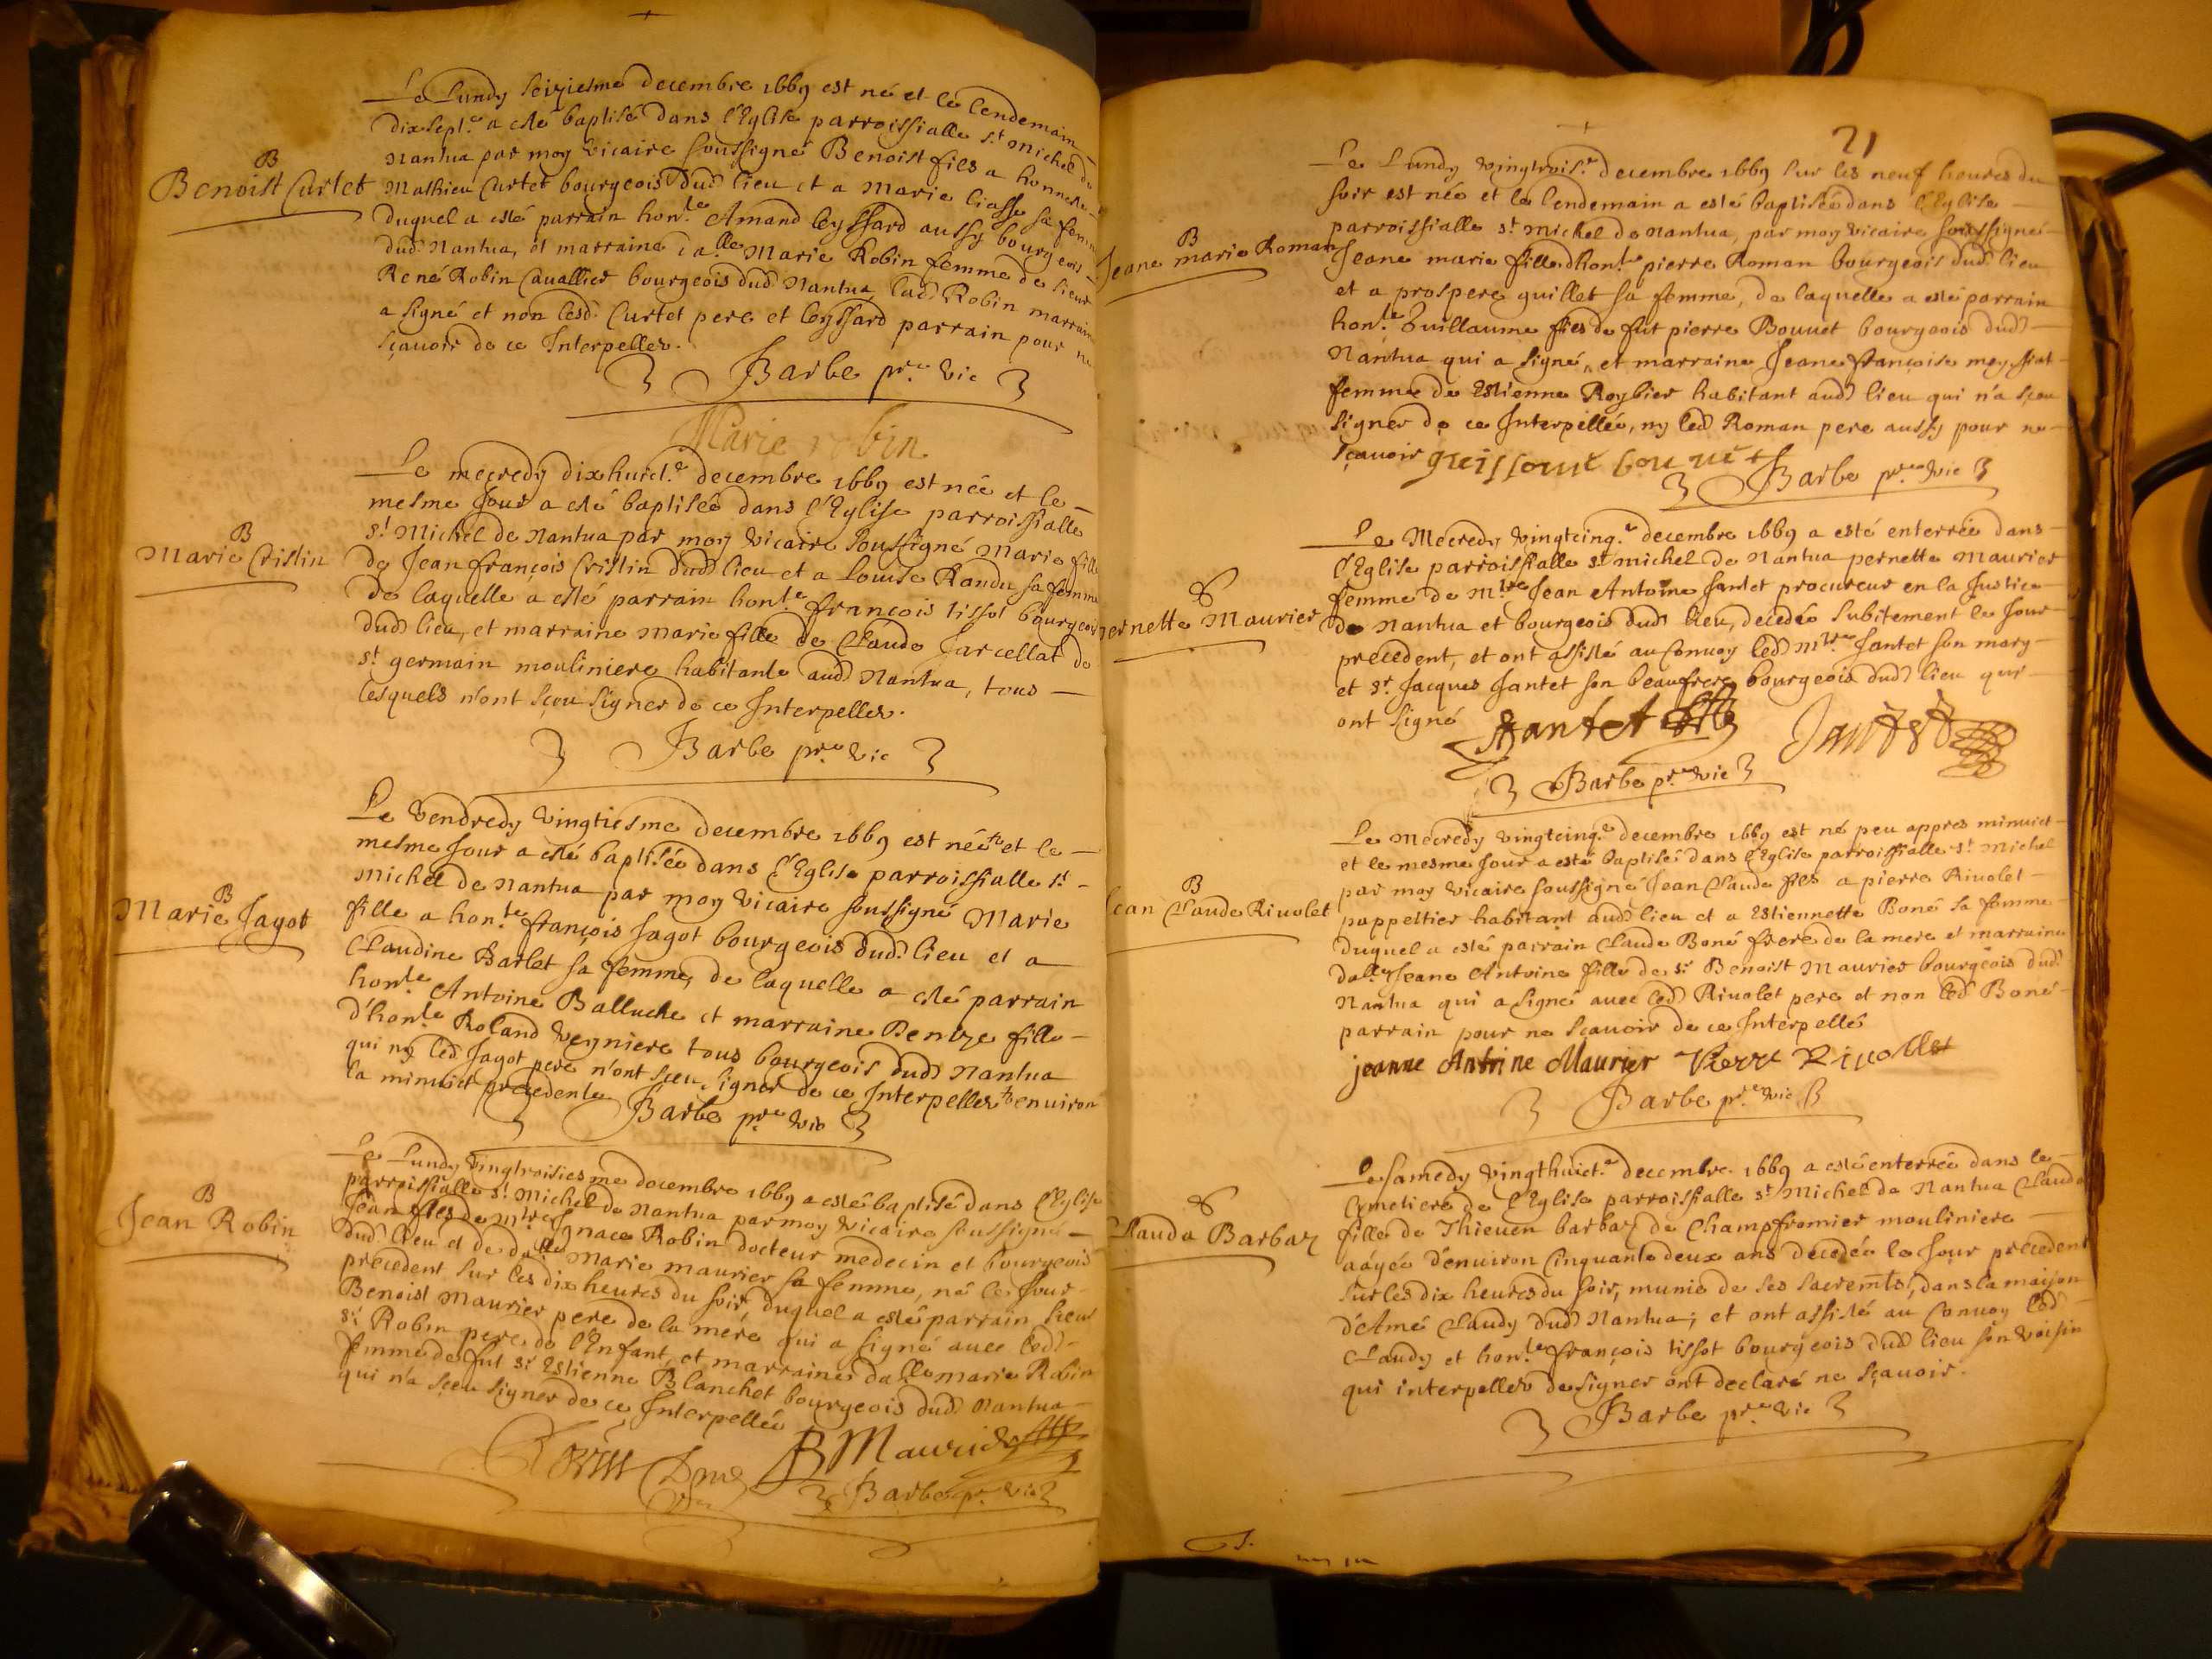 B
Benoist Curtet
Le Lundy seiziesme decembre 1669 est né et le lendemain
dixsept.e a esté baptisé dans l'Eglise parroissialle st Michel de
Nantua par moy vicaire soussigné Benoist fils a honneste
Mathieu Curtet bourgeois dud lieu et a Marie liasse sa femme
duquel a esté parrain hon.te Amand Ceyssard aussy bourgeois
dud Nantua, et marraine da.lle Marie Robin femme de sieur
René Robin Cauallier bourgeois dud Nantua, lad Robin marraine
a signé et non lesd. Curtet pere et Ceyssard parrain pour ne
sçauoir de ce Interpellez.
Barbe pr.e vic
Marie robin
B
Marie Cristin
Le mecredy dixhuict.e decembre 1669 est née et le
mesme Jour a esté baptisée dans l'Eglise parroissialle
st Michel de Nantua par moy vicaire soussigné Marie fille
de Jean françois Cristin dud lieu et a Louise Randu sa femme
de laquelle a esté parrain hon.te françois tissot bourgeois
dud lieu, et marraine Marie fille de Claude Jarcellat de
st germain mouliniere habitante aud Nantua, tous
lesquels n'ont sçeu signer de ce Interpellez.
Barbe pr.e vic
B
Marie Jagot
Le vendredy vingtiesme decembre 1669 est née et le
mesme Jour a esté baptisée dans l'Eglise parroissialle st
Michel de Nantua par moy vicaire soussigné Marie
fille a hon.te françois Jagot bourgeois dud lieu et a
Claudine Barlet sa femme, de laquelle a esté parrain
hon.te Antoine Balluche et marraine Benoze fille
d'hon.te Roland Veyniere tous bourgeois dud Nantua
qui ny led. Jagot pere n'ont sçeu signer de ce Interpellez enuiron
la minuict precedente
Barbe pr.e vic
B
Jean Robin
Le Lundy vingtroisiesme decembre 1669 a esté baptisé dans l'Eglise
parroissialle st Michel de Nantua par moy vicaire soussigné
Jean fils de Mtre Ignace Robin docteur medecin et bourgeois
dud lieu et de da.lle Marie maurier sa femme, né le Jour
precedent sur les dix heures du soir, duquel a esté parrain sieur
Benoist Maurier pere de la mére qui a signé auec led
sr Robin pere de l'Enfant, et marraine da.lle marie Robin
femme de fut sr Estienne Blanchet bourgeois dud Nantua
qui n'a sçeu signer de ce Interpellée
Robin B Maurier
Barbe pr. vic
21
B
Jeane marie Roman
Le Lundy vingtrois.e decembre 1669 sur les neuf heures du
soir est née et le lendemain a esté baptisée dans l'Eglise
parroissialle st michel de Nantua, par moy vicaire soussigné
Jeane marie fille d'hon.te pierre Roman bourgeois dud lieu
et a prospere guillet sa femme, de laquelle a esté parrain
hon.te Guillaume fils de fut pierre Bouuet bourgeois dud
Nantua qui a signé, et marraine Jeane françoise meyssiat
femme de Estienne Roybier habitant aud lieu qui n'a sçeu
signer de ce Interpellée, ny led Roman pere aussy pour ne
sçauoir
Barbe pr.e vic
pernette Maurier
Le Mecredy vingtcinq.e decembre 1669 a esté enterrée dans
l'Eglise parroissialle st michel de Nantua pernette Maurier
femme de M.tre Jean Antoine Jantet procureur en la Justice
de Nantua et bourgeois dud lieu, decedée subitement le Jour
precedent, et ont assisté au Conuoy led M.tre Jantet son mary
et sr Jacques Jantet son beaufrere bourgeois dud lieu qui
ont signé
Jantet Jantet
Barbe pr.e vic
B
Jean Claude Riuolet
Le Mecredy vingtcinq.e decembre 1669 est né peu appres minuict
et le mesme Jour a esté baptisé dans l'Eglise parroissialle st Michel
par moy vicaire soussigné Jean Claude fils a pierre Riuolet
pappeltier habitant aud lieu et a Estiennette Boné sa femme
duquel a esté parrain Claude Boné frere de la mere et marraine
da.lle Jeane Antoine fille de sr Benoist Maurier bourgeois dud
Nantua qui a signé auec led Riuolet pere et non led Boné
parrain pour ne sçauoir de ce Interpellé
jeanne Antoine Maurier Pierre Riuollet
Barbe pr.e vic
Claude Barbaz
Le Samedy vingthuict.e decembre 1669 a esté enterrée dans le
Cymetiere de l'Eglise parroissialle st Michel de Nantua Claude
fille de Thieuen barbaz de Champfromier mouliniere
aâgée d'enuiron Cinquante deux ans decedée le Jour precedent
sur les dix heures du soir, munie de ses sacremts, dans la maison
d'Amé Claudy dud Nantua; et ont assisté au Conuoy led
Claudy et hon.te françois tissot bourgeois dud lieu son voisin
qui interpellez de signer ont declaré ne sçauoir.
Barbe pr.e vic